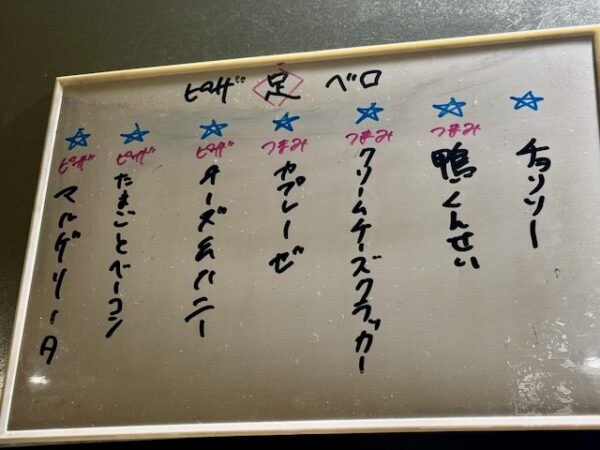 ピザ 足 ベロ
チョリソー
つまみ
鴨くんせい
つまみ
クリームチーズクラッカー
つまみ
カプレーゼ
ピザ
チーズ&ハニー
ピザ
たまごとベーコン
ピザ
マルゲリータ